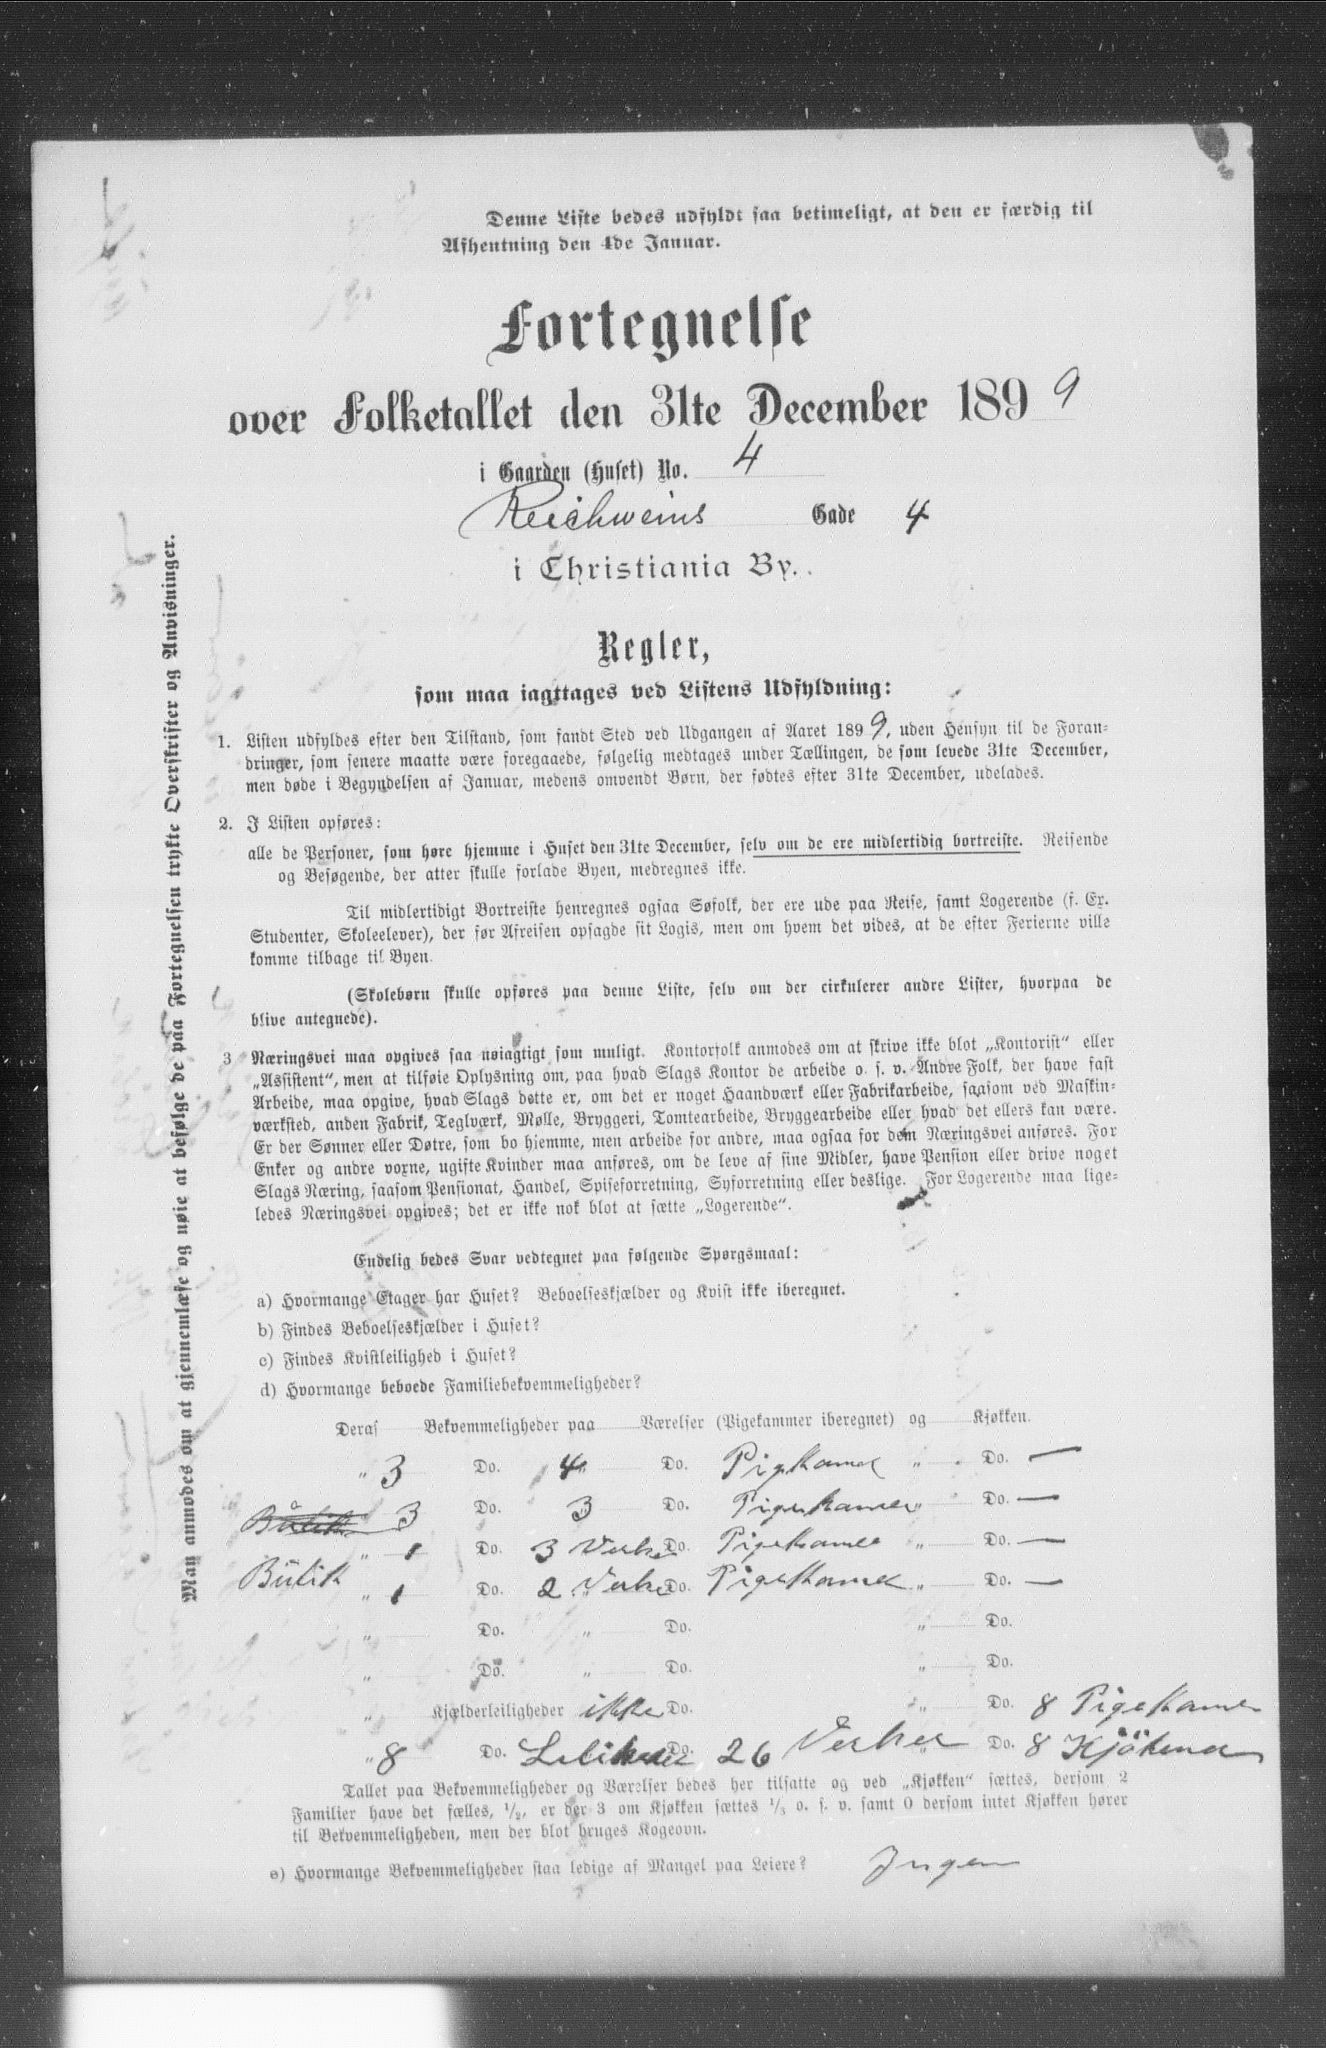 Denne Liste bedes udfyldt saa betimeligt, at den er færdig til
Afhentning den 4de Januar.
Fortegnelse
over Folketallet den 31te December 1899
i Gaarden (Huset) No. 4
Reichweins Gade 4
i Christiania By.
Regler,
som maa iagttages ved Listens Udfyldning:
1. Listen udfyldes efter den Tilstand, som fandt Sted ved Udgangen af Aaret 1899, uden Hensyn til de Foran-
dringer, som senere maatte være foregaaede, følgelig medtages under Tællingen, de som levede 31te December,
men døde i Begyndelsen af Januar, medens omvendt Børn, der fødtes efter 31te December, udelades.
2. I Listen opføres:
alle de Personer, som høre hjemme i Huset den 31te December, selv om de ere midlertidig bortreiste. Reisende
og Besøgende, der atter skulle forlade Byen, medregnes ikke.
Til midlertidigt Bortreiste henregnes ogsaa Søfolk, der ere ude paa Reise, samt Logerende (f. Ex.
Studenter, Skoleelever), der før Afreisen opsagde sit Logis, men om hvem det vides, at de efter Ferierne ville
komme tilbage til Byen.
(Skolebørn skulle opføres paa denne Liste, selv om der cirkulerer andre Lister, hvorpaa de
blive antegnede).
3 Næringsvei maa opgives saa nøiagtigt som muligt. Kontorfolk anmodes om at skrive ikke blot „Kontorist“ eller
„Assistent“, men at tilføie Oplysning om, paa hvad Slags Kontor de arbeide o. s. v. Andre Folk, der have fast
Arbeide, maa opgive, hvad Slags dette er, om det er noget Haandværk eller Fabrikarbeide, saasom ved Maskin-
værksted, anden Fabrik, Teglværk, Mølle, Bryggeri, Tomtearbeide, Bryggearbeide eller hvad det ellers kan være.
Er der Sønner eller Døtre, som bo hjemme, men arbeide for andre, maa ogsaa for dem Næringsvei anføres. For
Enker og andre voxne, ugifte Kvinder maa anføres, om de leve af sine Midler, have Pension eller drive noget
Slags Næring, saasom Pensionat, Handel, Spiseforretning, Syforretning eller deslige. For Logerende maa lige-
ledes Næringsvei opgives; det er ikke nok blot at sætte „Logerende“.
Endelig bedes Svar vedtegnet paa følgende Spørgsmaal:
a) Hvormange Etager har Huset? Beboelseskjælder og Kvist ikke iberegnet.
b) Findes Beboelseskjælder i Huset?
c) Findes Kvistleilighed i Huset?
d) Hvormange beboede Familiebekvemmeligheder?
Deraf Bekvemmeligheder paa Værelser (Pigekammer iberegnet) og Kjøkken.
„ 3 Do. 4 „ Do. Pigkamer „ Do. —
Bütik 3 Do. 3 Do. Pigekamer „ Do. —
„ 1 Do. 3 Do. Pigekamer „ Do. —
Bütik „ 1 Do. 2 „ Do. Pigekamer „ Do. —
„ Do. „ Do. „ Do.
„ Do. „ Do. „ Do.
„ Kjælderleiligheder ikke Do. „ Do. 8 Pigekamer
„ 8 Do. Do. 26 „ Do. 8 Kjökener
Tallet paa Bekvemmeligheder og Værelser bedes her tilsatte og ved „Kjøkken“ sættes, dersom 2
Familier have det fælles, 1/2, er der 3 om Kjøkken sættes 1/3 o. s. v. samt 0 dersom intet Kjøkken hører
til Bekvemmeligheden, men der blot bruges Kogeovn.
e) Hvormange Bekvemmeligheder staa ledige af Mangel paa Leiere? Ingen
Man anmodes om at gjennemlæse og nøie at befølge de paa Fortegnelsen trykte Overskrifter og Anvisninger.